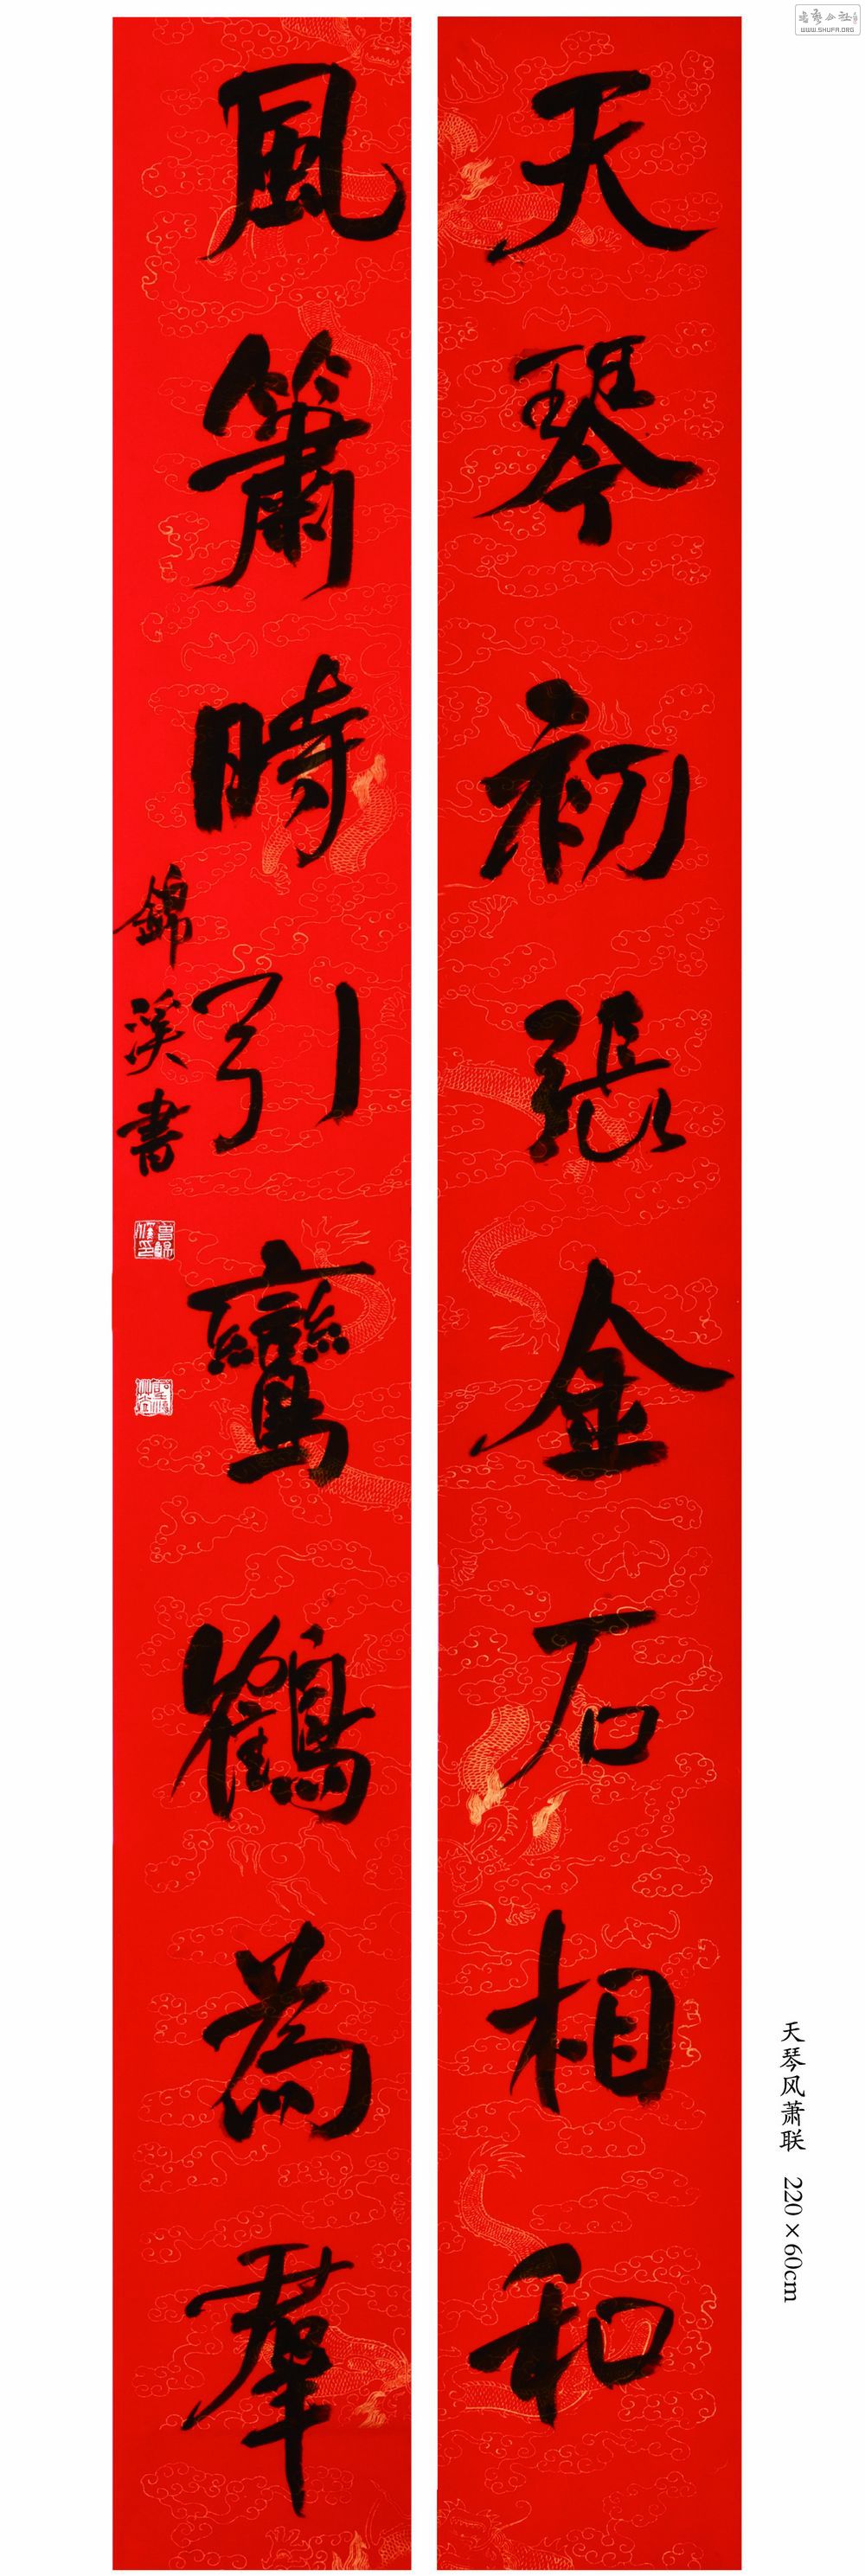 天琴初張金石相和
風簫時引鸞鶴為羣
錦溪書
天琴风萧联 220×60cm
WWW.SHUFA.ORG